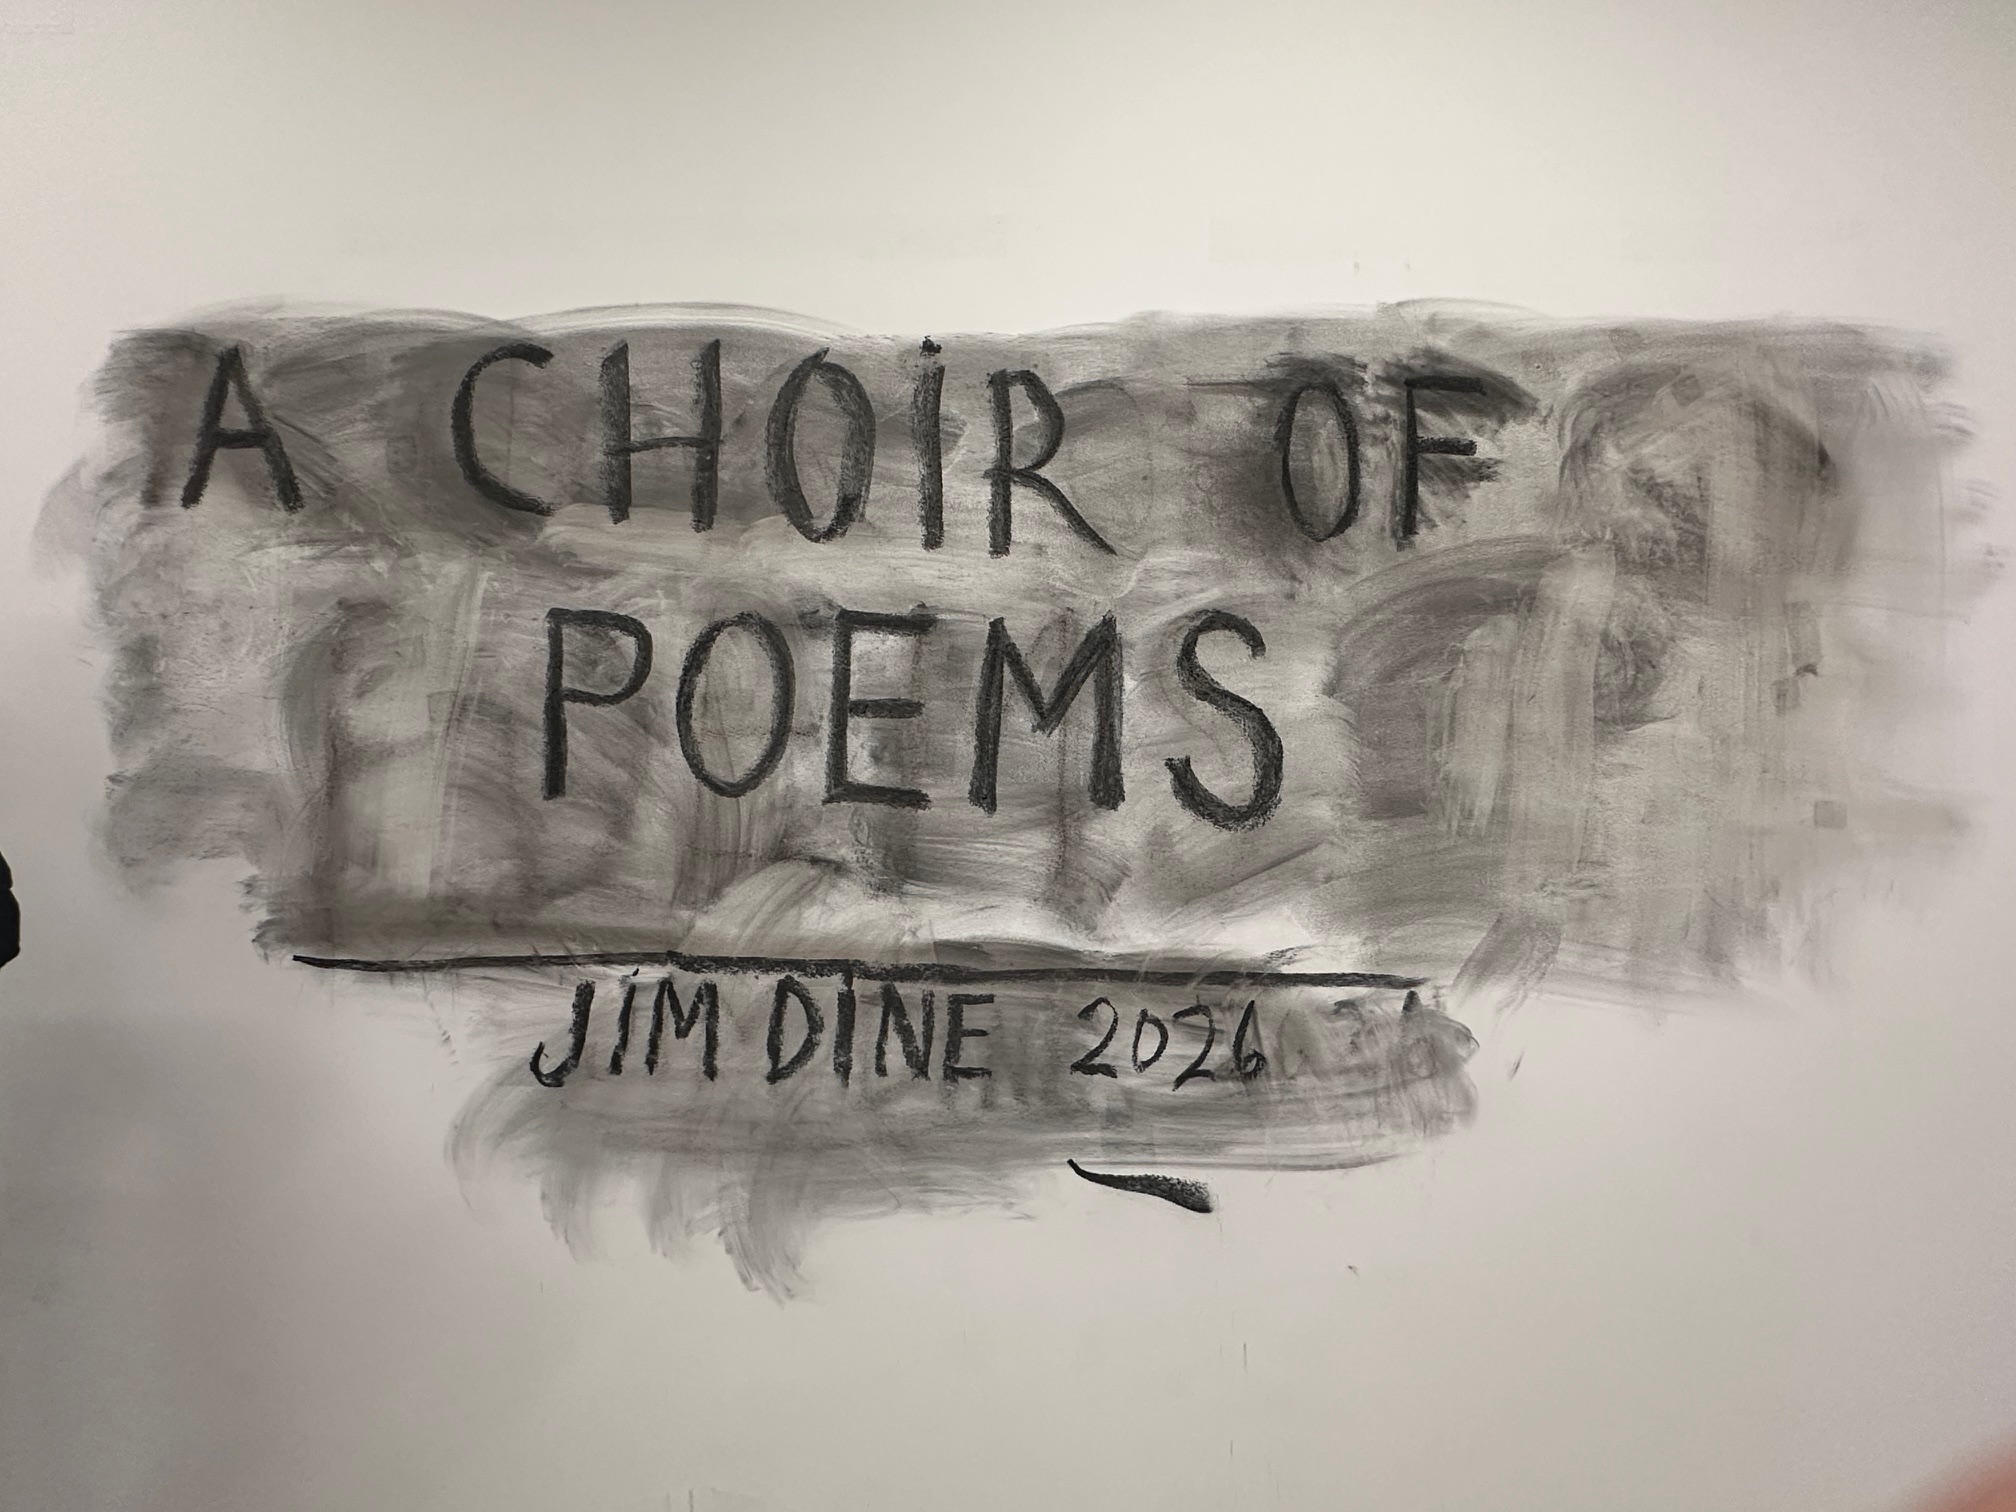 A CHOiR OF
POEMS
JiM DiNE 2026